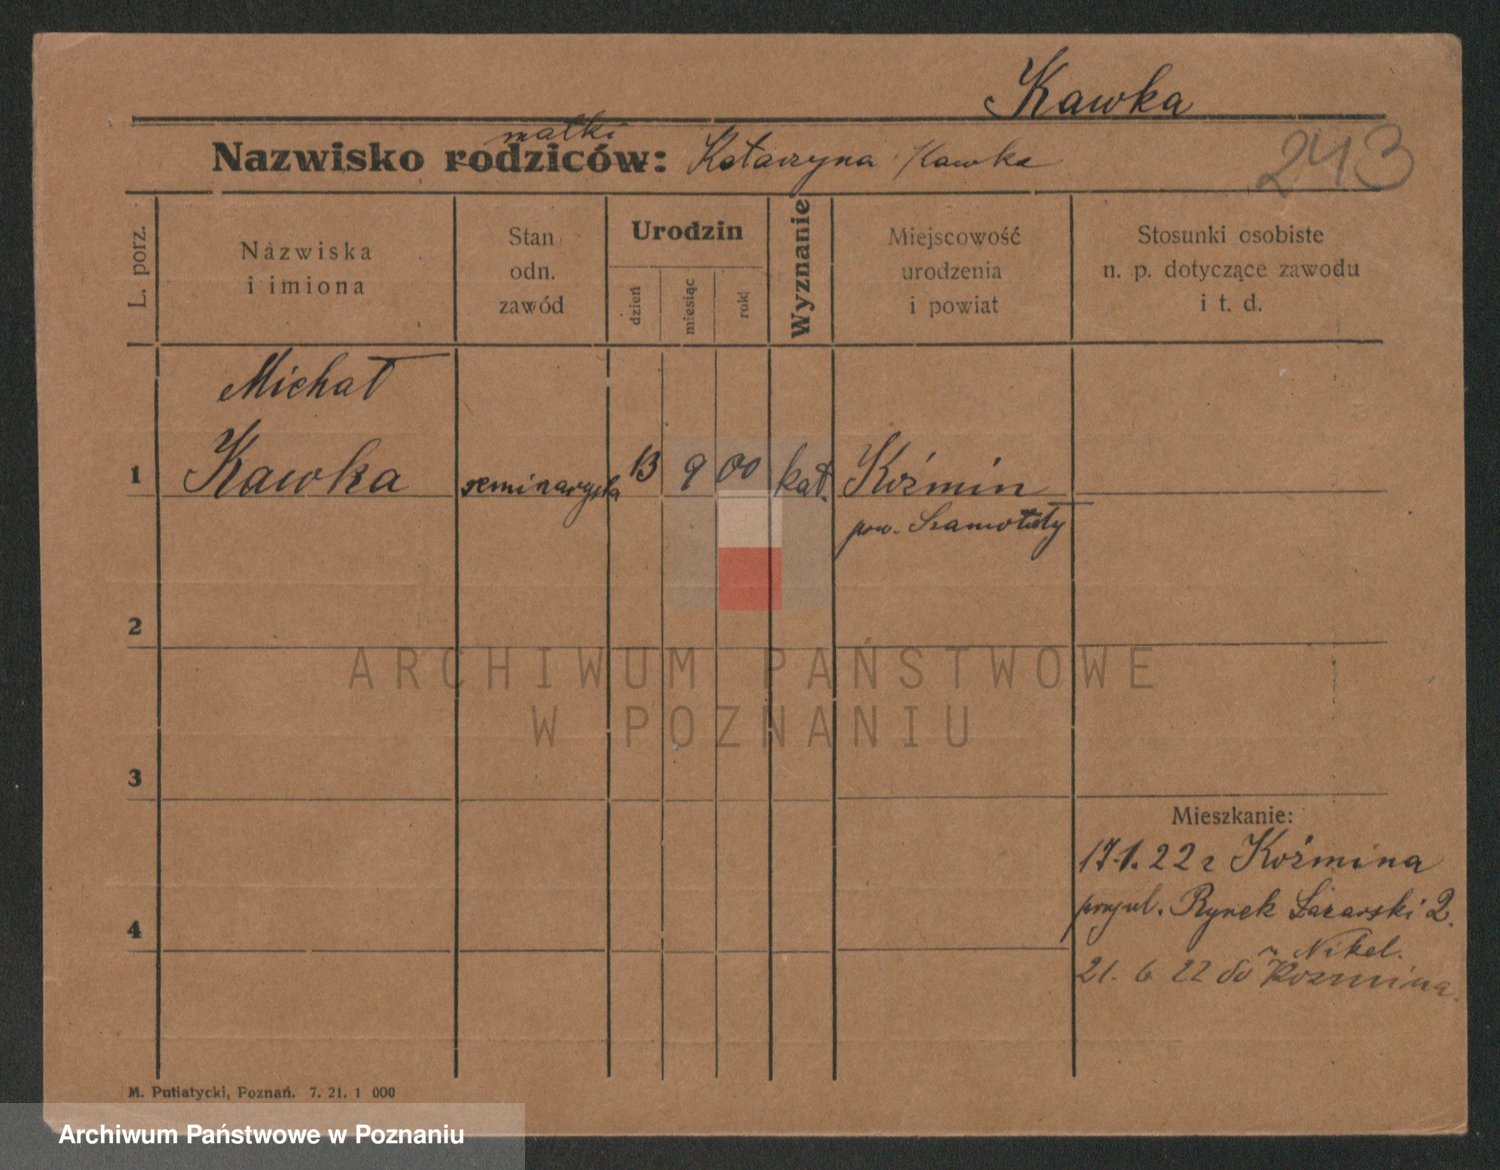 Kawka
matki
Nazwisko rodziców: Katarzyna Kawka
243
L. porz.
Nazwiska
i imiona
Stan
odn.
zawód
Urodzin
dzień
miesiąc
rok
Wyznanie
Miejscowość
urodzenia
i powiat
Stosunki osobiste
n. p. dotyczące zawodu
i t. d.
Michał
1 Kawka seminarzysta 13 9 00 kat. Koźmin
pow. Szamotuły
2
ARCHIWUM PAŃSTWOWE
W POZNANIU
3
Mieszkanie:
17.1.22 z Koźmina
Rynek Łazarski 2.
4
n. Nikel.
21. 6 22 do Kozmina.
M. Putiatycki, Poznań. 7. 21. 1 000
Archiwum Państwowe w Poznaniu